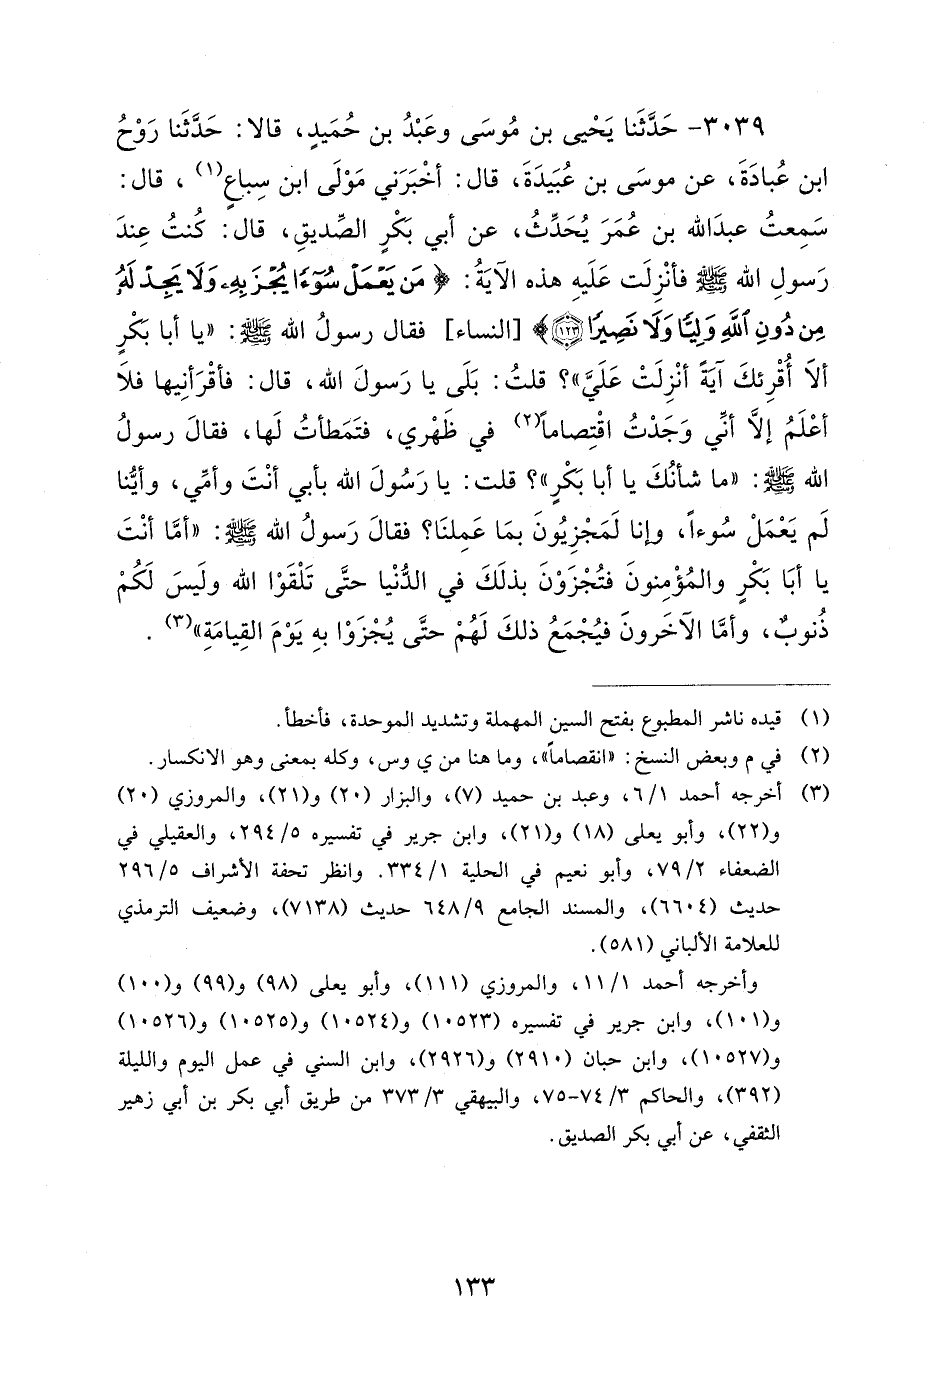 ٣٠٣٩- حَدَّثَنا يَحْيى بن مُوسَى وعَبْدُ بن حُمَيدٍ، قالا: حَدَّثَنا رَوْحُ
ابن عُبادَةَ، عن موسَى بن عُبَيدَةَ، قال: أخْبَرَني مَوْلَى ابن سِباعٍ(١)، قال:
سَمِعتُ عبدَالله بن عُمَرَ يُحَدِّثُ، عن أبي بَكْرٍ الصِّديقِ، قال: كُنتُ عِندَ
رَسولِ الله ﷺ فأنْزِلَت عَلَيهِ هذه الآيَةُ: ﴿مَن يَعْمَلْ سُوٓءًا يُجْزَ بِهِۦ وَلَا يَجِدْ لَهُۥ
مِن دُونِ ٱللَّهِ وَلِيًّا وَلَا نَصِيرًا ١٢٣﴾ [النساء] فقال رسولُ الله ﷺ: «يا أبا بَكْرٍ
ألاَ أُقْرِئكَ آيَةً أنْزِلَتْ عَلَيَّ»؟ قلتُ: بَلَى يا رَسولَ الله، قال: فأقْرَأنِيها فلاَ
أعْلَمُ إلاَّ أنِّي وَجَدْتُ اقْتِصاماً(٢) في ظَهْري، فتَمَطأتُ لَها، فقالَ رسولُ
الله ﷺ: «ما شأنُكَ يا أبا بَكْرٍ»؟ قلت: يا رَسُولَ الله بأبي أنْتَ وأمِّي، وأيُّنا
لَم يَعْمَلْ سُوءاً، وإنا لَمَجْزِيُونَ بمَا عَمِلنَا؟ فقالَ رَسولُ الله ﷺ: «أمَّا أنْتَ
يا أبَا بَكْرٍ والمُؤْمِنونَ فتُجْزَوْنَ بذلَكَ في الدُّنْيا حتَّى تَلْقَوْا الله ولَيسَ لَكُمْ
ذُنوبٌ، وأمَّا الآخَرونَ فيُجْمَعُ ذلكَ لَهُمْ حتَّى يُجْزَوْا بهِ يَوْمَ القِيامَةِ»(٣).
(١) قيده ناشر المطبوع بفتح السين المهملة وتشديد الموحدة، فأخطأ.
(٢) في م وبعض النسخ: «انقصاماً»، وما هنا من ي وس، وكله بمعنى وهو الانكسار.
(٣) أخرجه أحمد ٦/١، وعبد بن حميد (٧)، والبزار (٢٠) و(٢١)، والمروزي (٢٠)
و(٢٢)، وأبو يعلى (١٨) و(٢١)، وابن جرير في تفسيره ٢٩٤/٥، والعقيلي في
الضعفاء ٧٩/٢، وأبو نعيم في الحلية ٣٣٤/١. وانظر تحفة الأشراف ٢٩٦/٥
حديث (٦٦٠٤)، والمسند الجامع ٦٤٨/٩ حديث (٧١٣٨)، وضعيف الترمذي
للعلامة الألباني (٥٨١).
وأخرجه أحمد ١١/١، والمروزي (١١١)، وأبو يعلى (٩٨) و(٩٩) و(١٠٠)
و(١٠١)، وابن جرير في تفسيره (١٠٥٢٣) و(١٠٥٢٤) و(١٠٥٢٥) و(١٠٥٢٦)
و(١٠٥٢٧)، وابن حبان (٢٩١٠) و(٢٩٢٦)، وابن السني في عمل اليوم والليلة
(٣٩٢)، والحاكم ٧٤/٣-٧٥، والبيهقي ٣٧٣/٣ من طريق أبي بكر بن أبي زهير
الثقفي، عن أبي بكر الصديق.
١٣٣